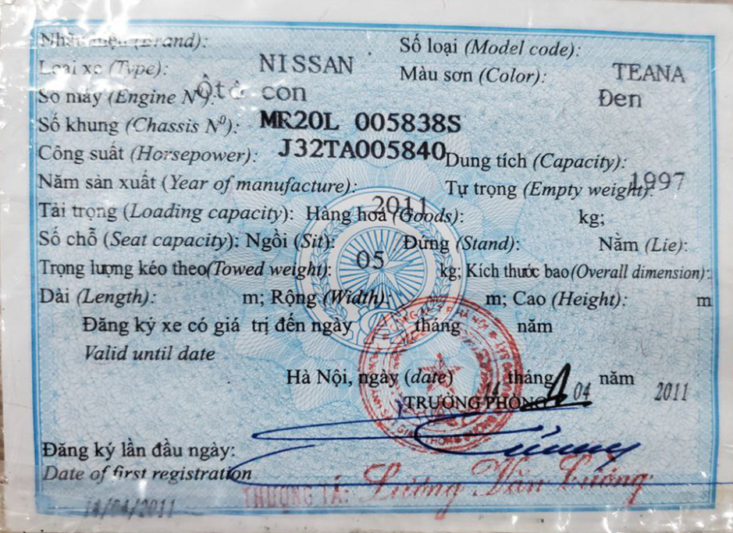 Nhãn hiệu (Brand): NISSAN Số loại (Model code): TEANA
Loại xe (Type): Ôtô con Màu sơn (Color): Đen
Số máy (Engine Nº): MR20L 005838S
Số khung (Chassis Nº): J32TA005840
Công suất (Horsepower): Dung tích (Capacity): 1997
Năm sản xuất (Year of manufacture): 2011 Tự trọng (Empty weight):
Tải trọng (Loading capacity): Hàng hoá (Goods): kg;
Số chỗ (Seat capacity): Ngồi (Sit): 05 Đứng (Stand): Nằm (Lie):
Trọng lượng kéo theo(Towed weight): kg; Kích thước bao(Overall dimension):
Dài (Length): m; Rộng (Width): m; Cao (Height): m
Đăng ký xe có giá trị đến ngày tháng năm
Valid until date
Hà Nội, ngày (date) 14 tháng 04 năm 2011
TRƯỞNG PHÒNG
Đăng ký lần đầu ngày:
Date of first registration
14/04/2011
THƯỢNG TÁ: Lương Văn Cương